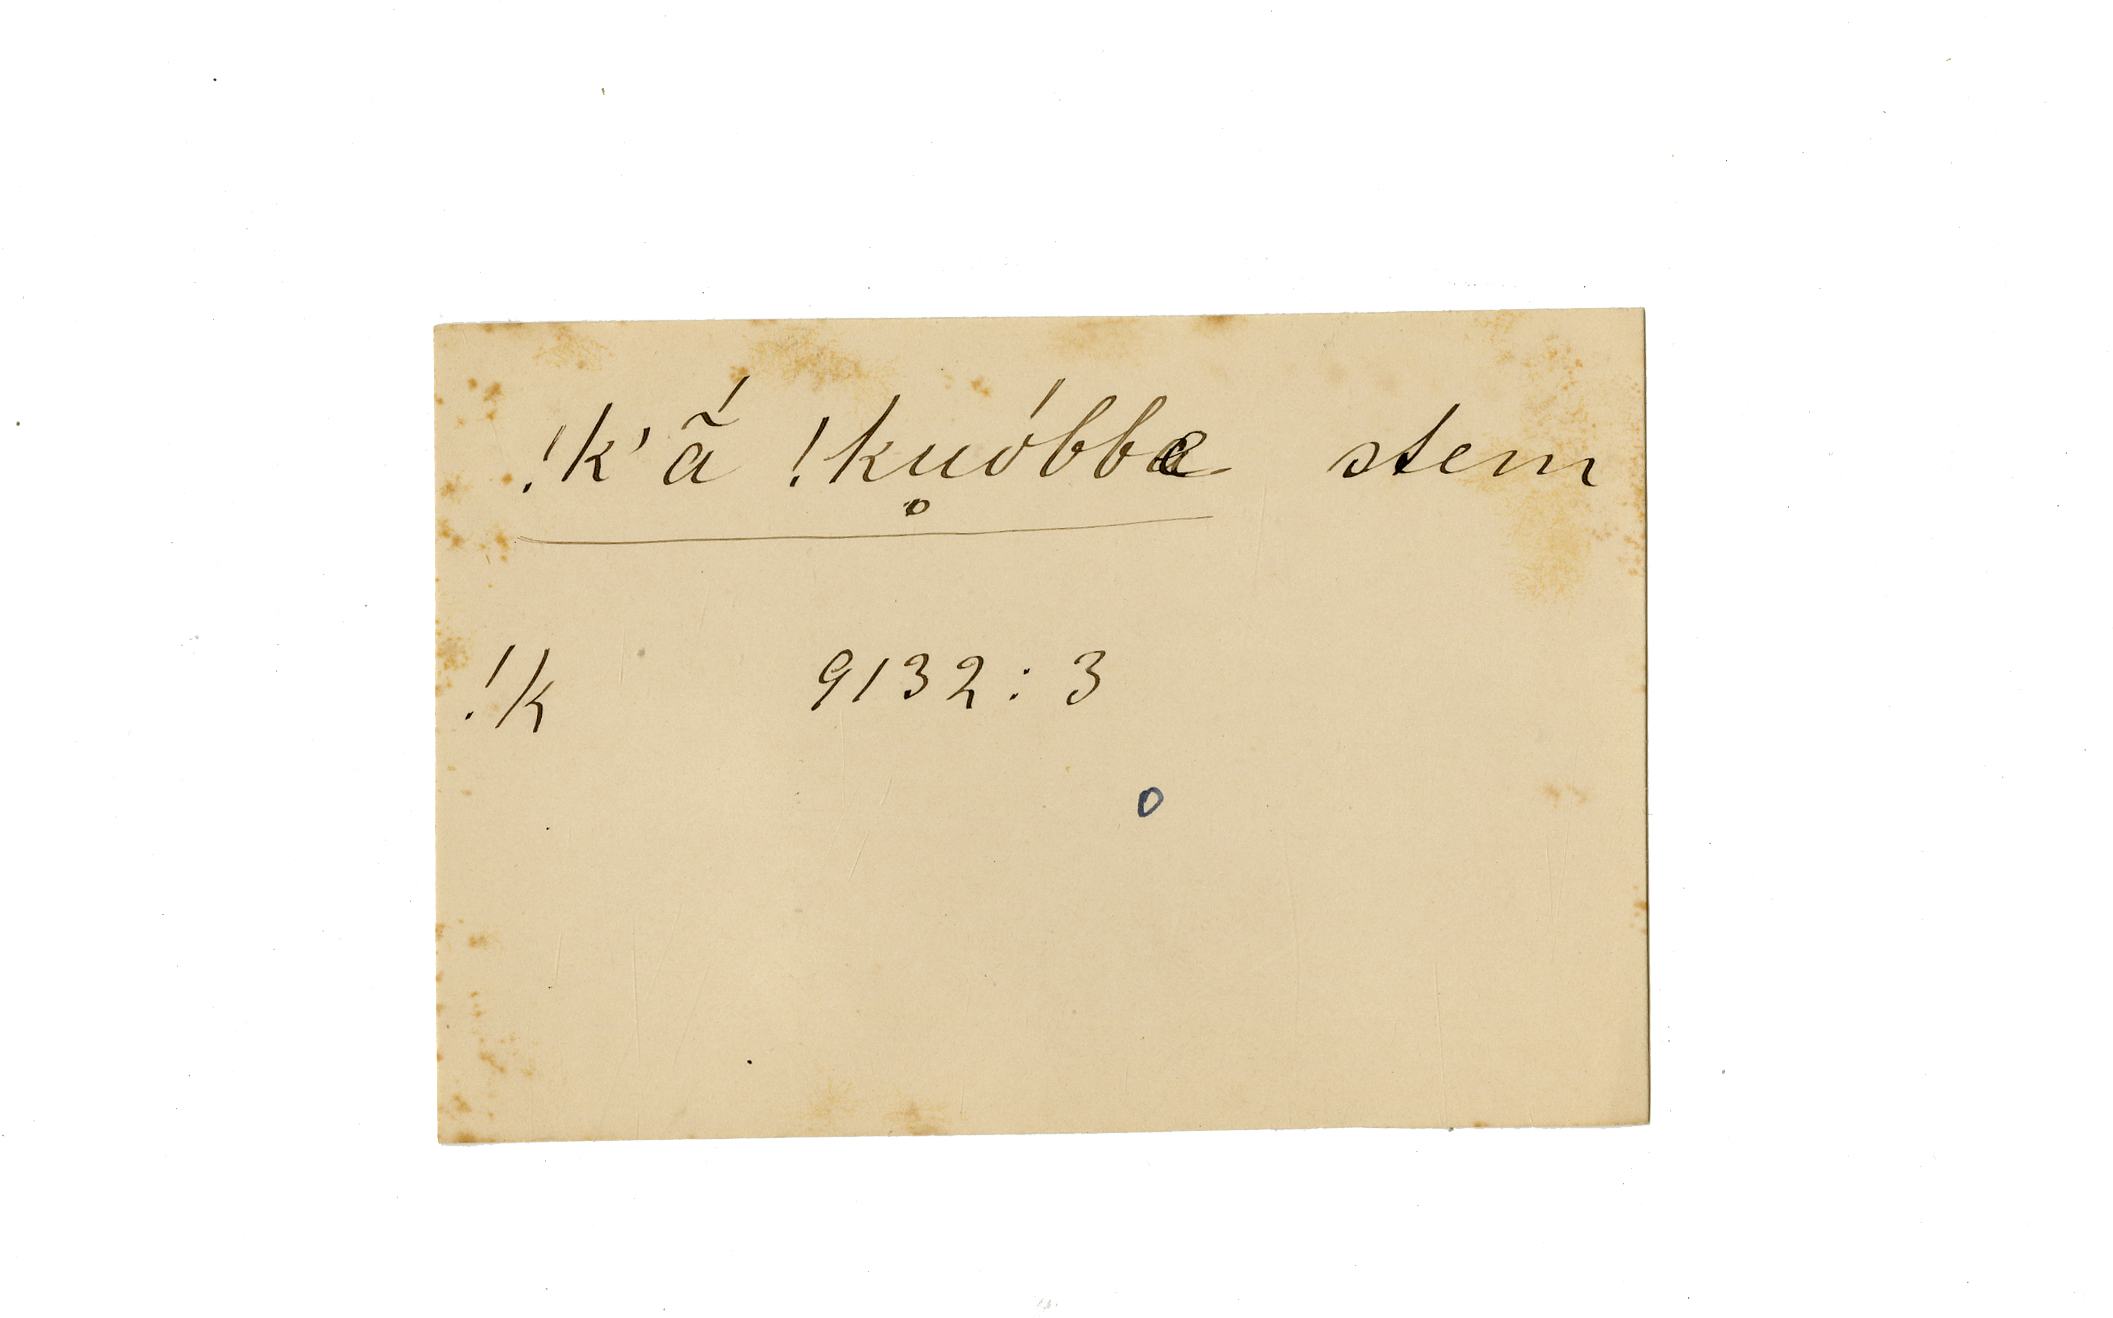 !k'ã́ !ku̥óbbe stem
!k 9132 : 3
o